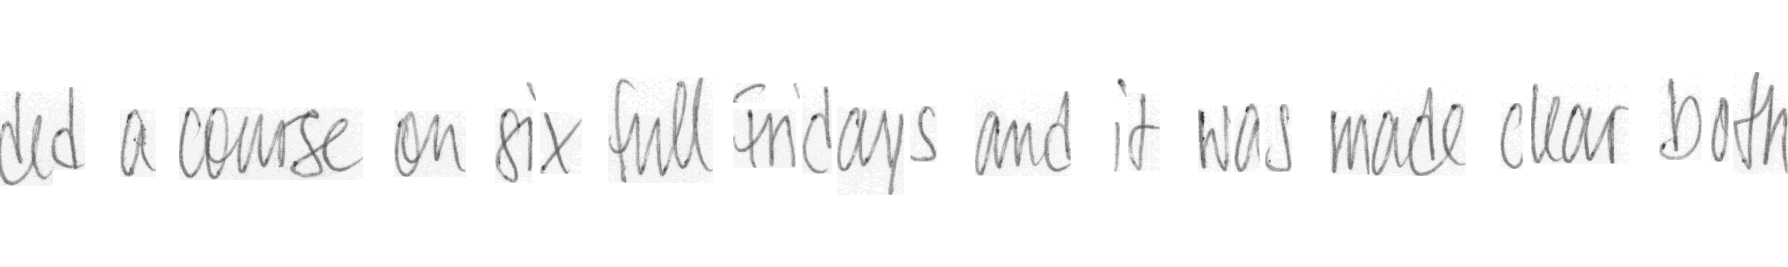 ded a course on six full Fridays and it was made clear both